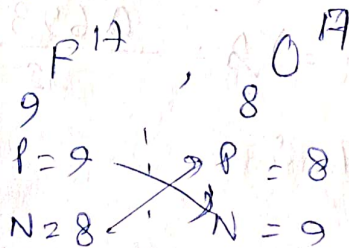 ₉F¹⁷ , ₈O¹⁷
P = 9 P = 8
N = 8 N = 9